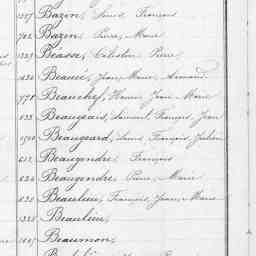 1397 Bazin, Louis François
702 Bazin, Pierre Marie
1323 Béasse, Célestin Pierre
1450 Beaucé, Jean Marie Armand
778 Beauchef, Jean Marie
Beaugeais, Samuel François Jean
1590 Beaugeard, Louis François Julien
652 Beaugendre, François
624 Beaugendre, Pierre Marie
830 Beaulieu, François Jean Marie
1325 Beaulieu,
Beaumon,